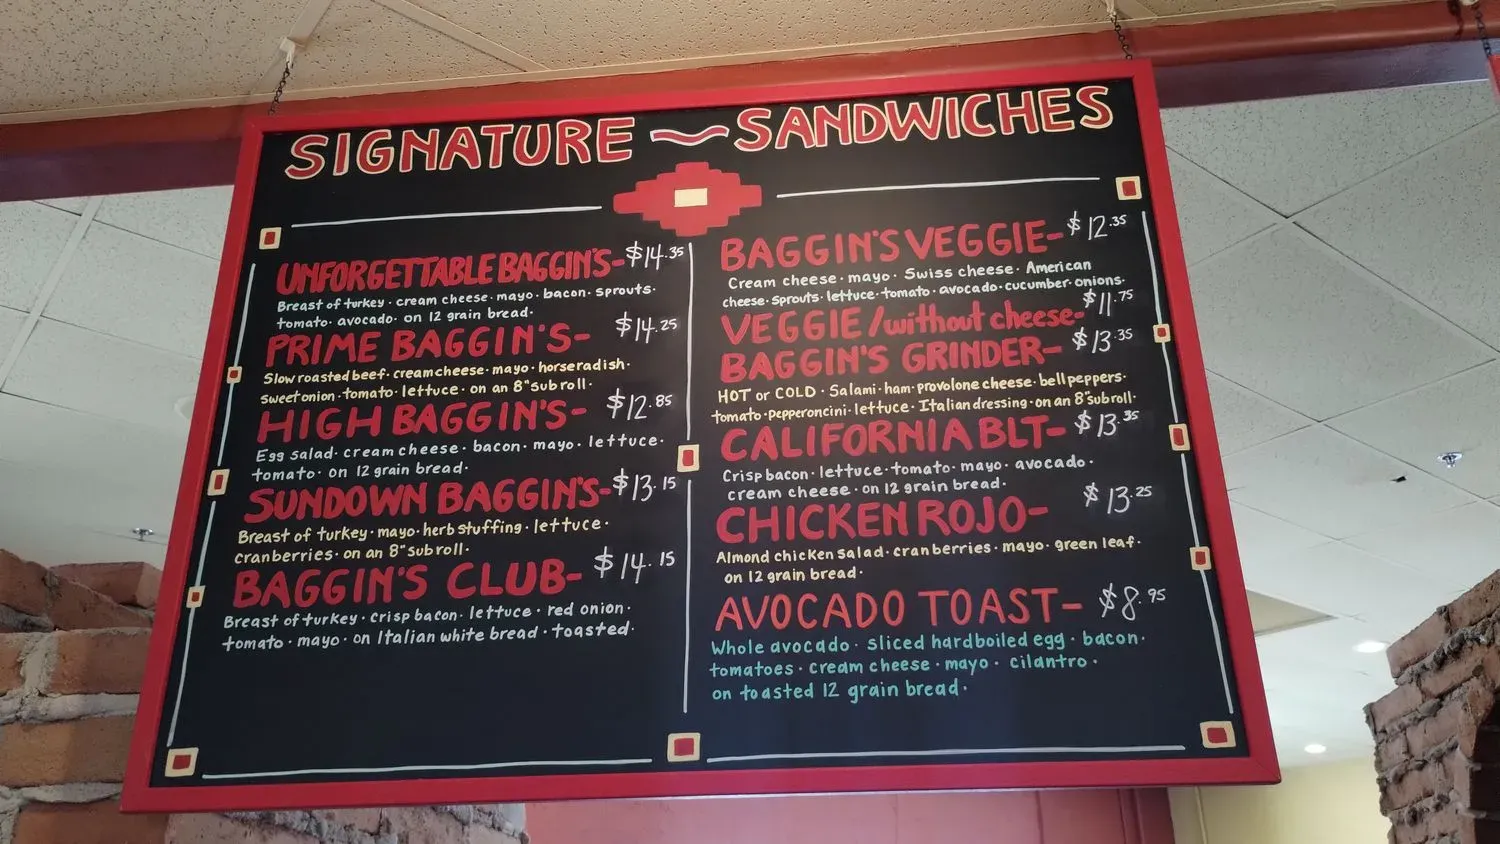 SIGNATURE ~ SANDWICHES
UNFORGETTABLE BAGGIN'S- $14.35
Breast of turkey · cream cheese · mayo · bacon · sprouts ·
tomato · avocado · on 12 grain bread ·
PRIME BAGGIN'S- $14.25
Slow roasted beef · cream cheese · mayo · horseradish ·
sweet onion · tomato · lettuce · on an 8" sub roll ·
HIGH BAGGIN'S- $12.85
Egg salad · cream cheese · bacon · mayo · lettuce ·
tomato · on 12 grain bread ·
SUNDOWN BAGGIN'S- $13.15
Breast of turkey · mayo · herb stuffing · lettuce ·
cranberries · on an 8" sub roll ·
BAGGIN'S CLUB- $14.15
Breast of turkey · crisp bacon · lettuce · red onion ·
tomato · mayo · on Italian white bread · toasted ·
BAGGIN'S VEGGIE- $12.35
Cream cheese · mayo · Swiss cheese · American
cheese · sprouts · lettuce · tomato · avocado · cucumber · onions ·
VEGGIE/without cheese- $11.75
BAGGIN'S GRINDER- $13.35
HOT or COLD · Salami · ham · provolone cheese · bell peppers ·
tomato · pepperoncini · lettuce · Italian dressing · on an 8" sub roll ·
CALIFORNIA BLT- $13.35
Crisp bacon · lettuce · tomato · mayo · avocado ·
cream cheese · on 12 grain bread ·
CHICKEN ROJO- $13.25
Almond chicken salad · cranberries · mayo · green leaf ·
on 12 grain bread ·
AVOCADO TOAST- $8.95
Whole avocado · sliced hardboiled egg · bacon ·
tomatoes · cream cheese · mayo · cilantro ·
on toasted 12 grain bread ·